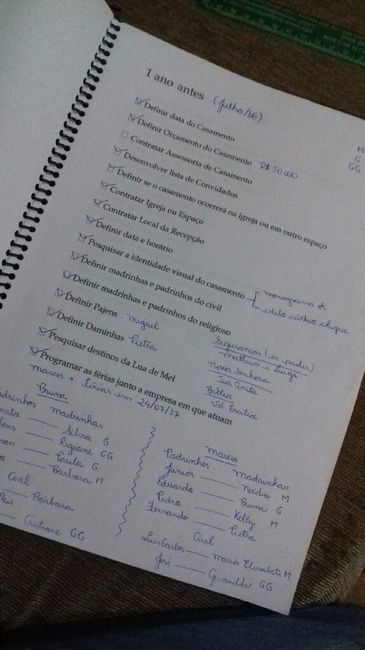 1 ano antes (Julho/16)
Definir data do Casamento
Definir Orçamento do Casamento R$ 50.000
Contratar Assessoria de Casamento
Desenvolver lista de Convidados
Definir se o casamento ocorrerá na igreja ou em outro espaço
Contratar Igreja ou Espaço
Contratar Local da Recepção
Definir data e horário
Pesquisar a identidade visual do casamento monograma
rústico chique
Definir madrinhas e padrinhos do civil
Definir madrinhas e padrinhos do religioso
Definir Pajens Miguel
Definir Daminhas Pietra
Pesquisar destinos da Lua de Mel
Programar as férias junto a empresa em que atuam
Marcos • férias em 24/07/17
Matheus e
Nossa Senhora
Tia Anita
Bíblia
Vó
M
G
GG
Bruna
Padrinhos Madrinhas
Silvia G
Rigiane GG
Paula G
Bárbara M
Civil
Bárbara
Cristiane GG
Marcos
Padrinhos Madrinhas
Junior Nádia M
Eduardo Bruna G
Pedro Kelly M
Fernando Pietra
Civil
Luis Carlos Maria Elizabete M
José Geranilda GG